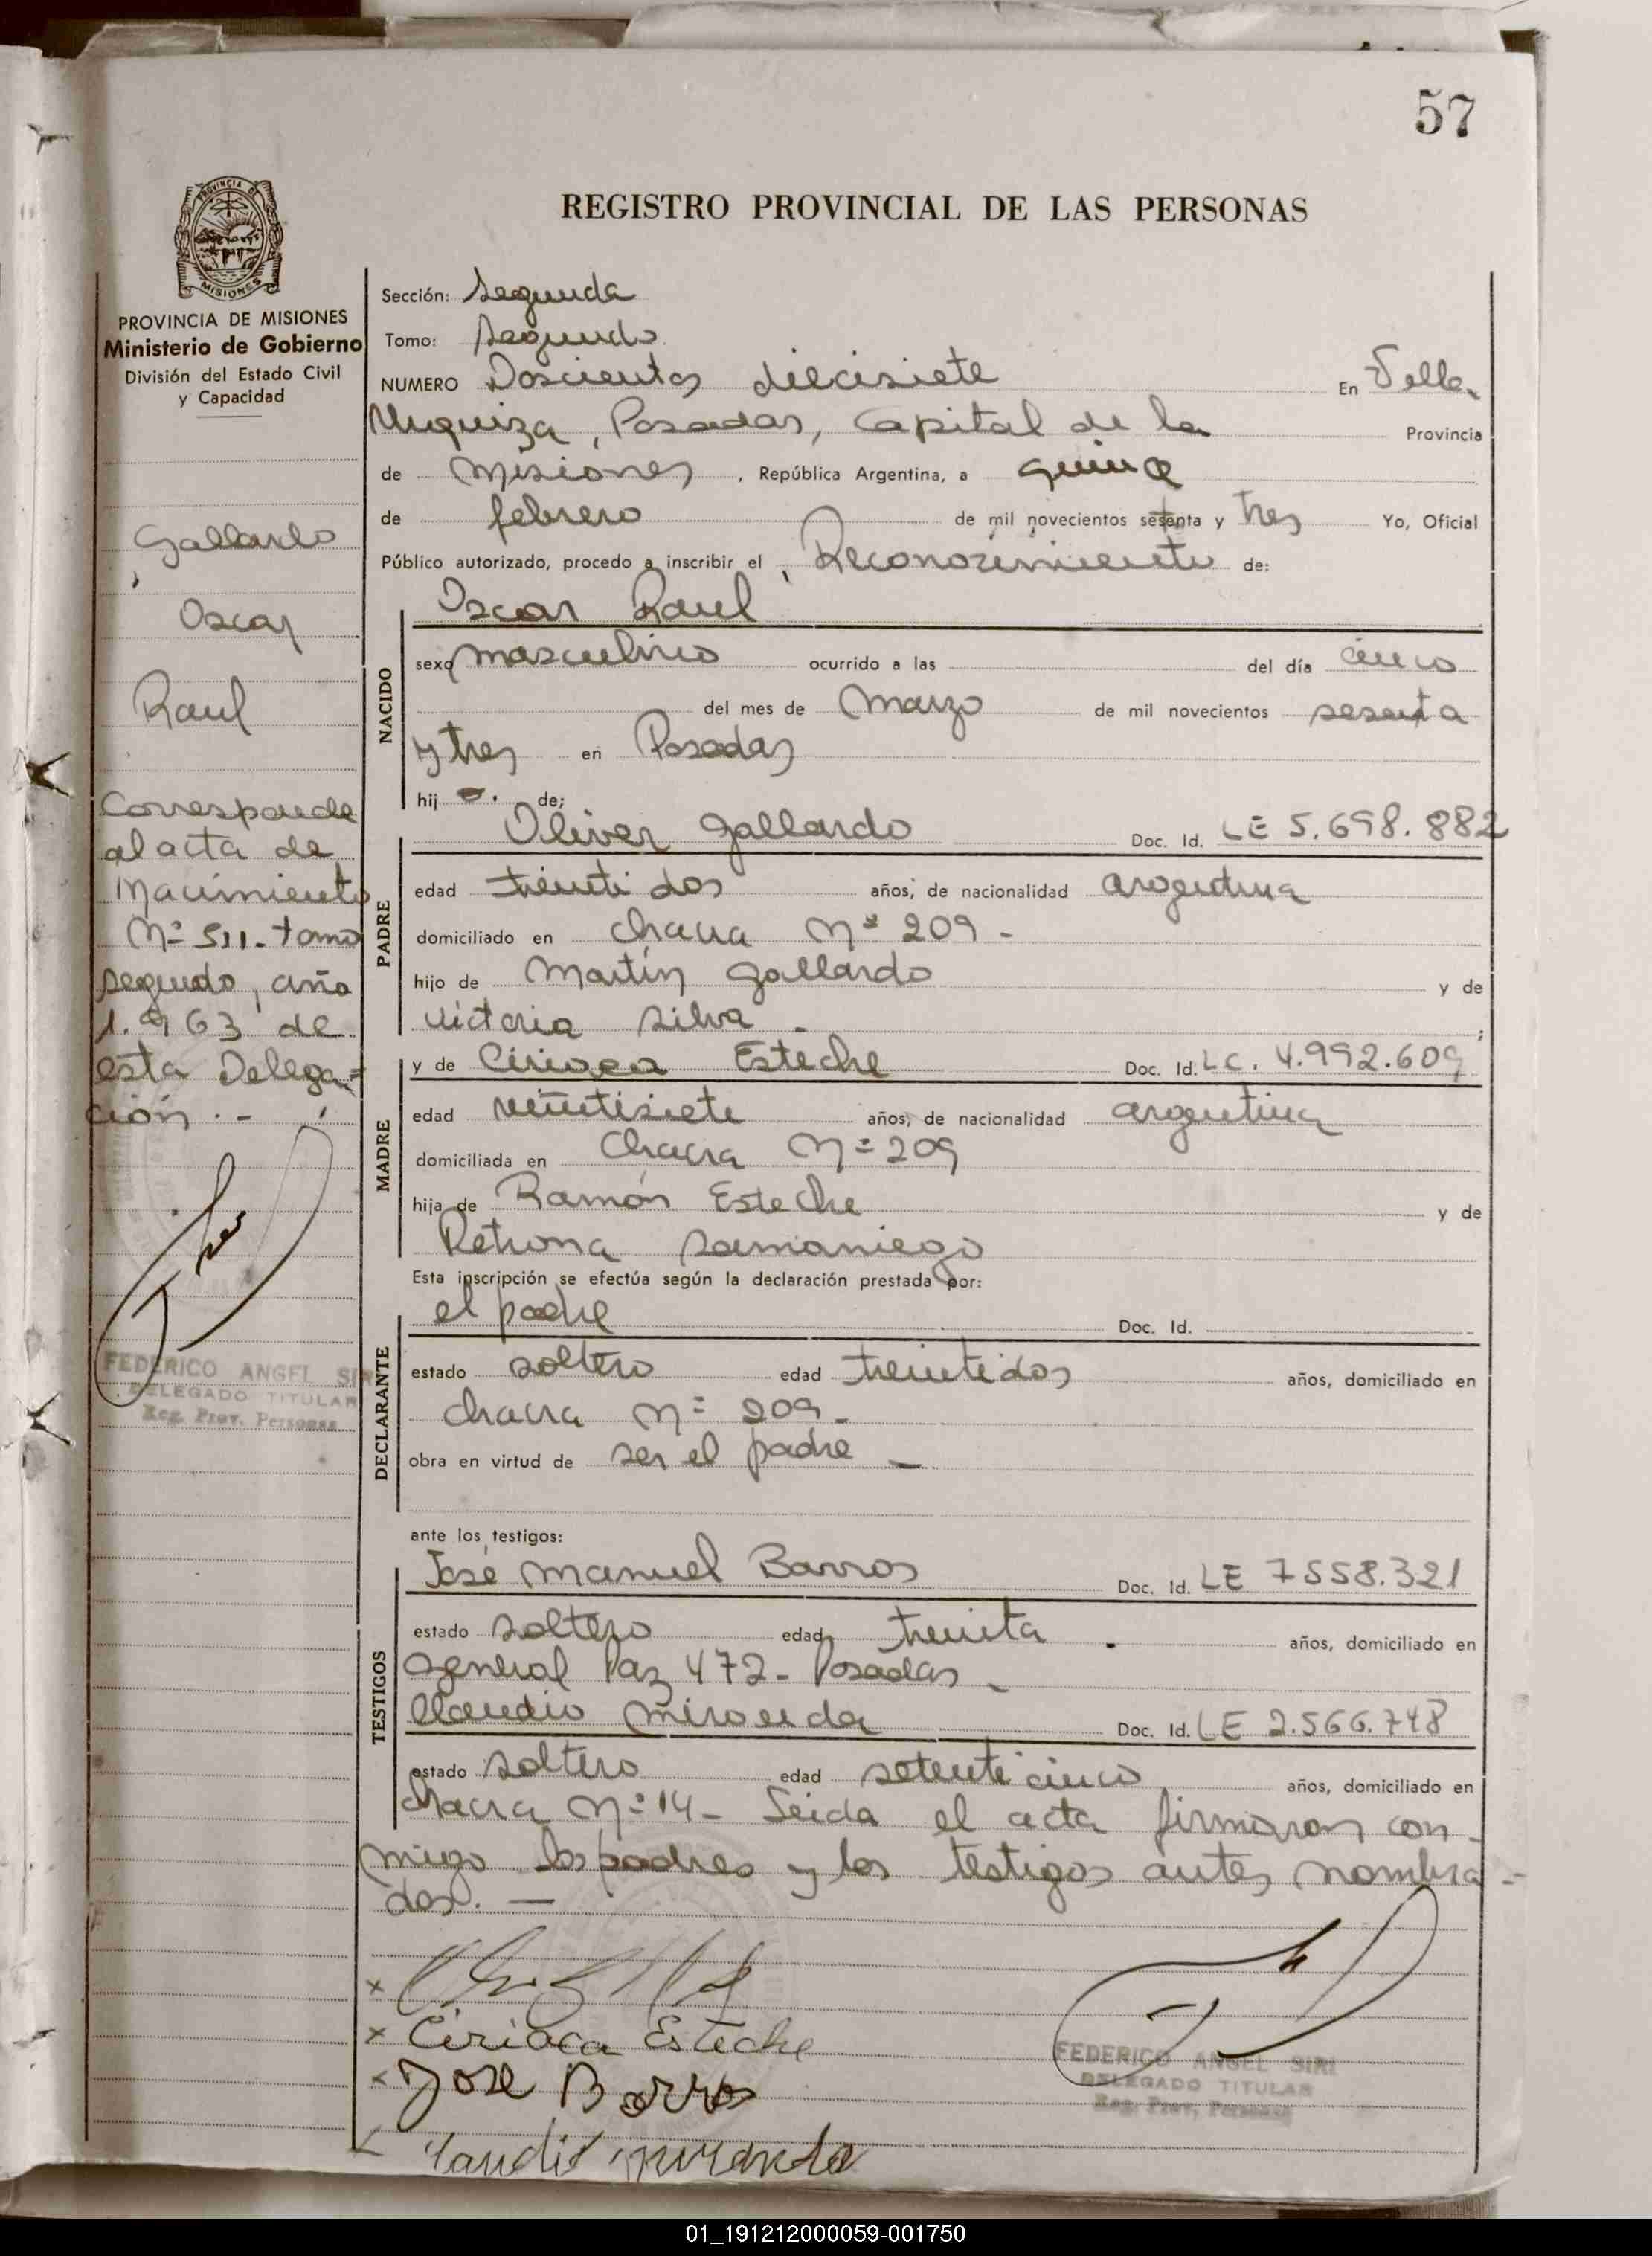 57
PROVINCIA DE
MISIONES
REGISTRO PROVINCIAL DE LAS PERSONAS
PROVINCIA DE MISIONES
Ministerio de Gobierno
División del Estado Civil
y Capacidad
Gallardo
Oscar
Raul
Corresponde
al acta de
Nacimiento
Nº 511 - tomo
segundo, año
1.963 de
esta Delega=
ción.-
FEDERICO ANGEL SIRI
DELEGADO TITULAR
Reg. Prov. Personas
Sección: Segunda
Tomo: Segundo
NUMERO Doscientos diecisiete En Villa
Urquiza, Posadas, Capital de la Provincia
de Misiones, República Argentina, a quince
de febrero de mil novecientos setenta y tres Yo, Oficial
Público autorizado, procedo a inscribir el Reconocimiento de:
Oscar Raul
NACIDO
sexo masculino ocurrido a las del día cinco
del mes de Marzo de mil novecientos sesenta
y tres en Posadas
hijo. de;
PADRE
Oliver Gallardo Doc. Id. LE 5.698.882
edad treinti dos años, de nacionalidad argentina
domiciliado en chacra Nº 209 -
hijo de Martín Gallardo y de
Victoria Silva - ;
MADRE
y de Ciriaca Esteche Doc. Id. LC. 4.992.609
edad veintisiete años, de nacionalidad argentina
domiciliada en Chacra Nº 209
hija de Ramón Esteche y de
Petrona Samaniego
Esta inscripción se efectúa según la declaración prestada por:
DECLARANTE
el padre Doc. Id.
estado soltero edad treintidos años, domiciliado en
chacra Nº 209 -
obra en virtud de ser el padre -
ante los testigos:
TESTIGOS
José Manuel Barros Doc. Id. LE 7558.321
estado soltero edad treinta años, domiciliado en
General Paz 472 - Posadas -
Claudio Miranda Doc. Id. LE 2.566.748
estado soltero edad setenticinco años, domiciliado en
chacra Nº 14 - Leida el acta firmaron con-
migo los padres y los testigos antes nombra-
dos. -
x
x Ciriaca Esteche
x Jose Barros
Claudio Miranda
FEDERICO ANGEL SIRI
DELEGADO TITULAR
Reg. Prov. Personas
01_191212000059-001750